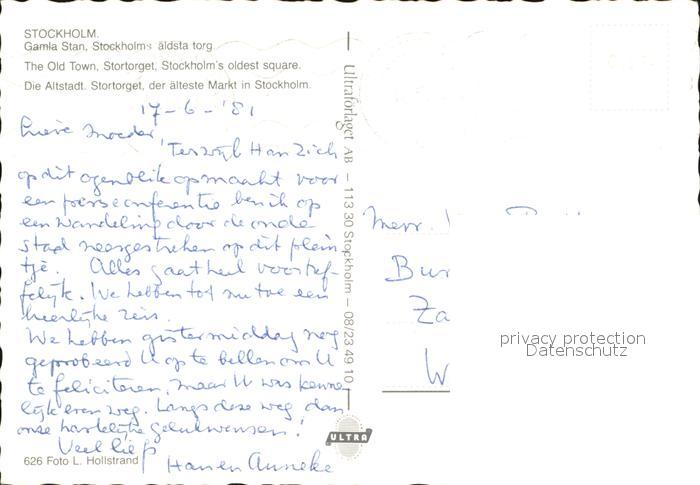 STOCKHOLM.
Gamla Stan, Stockholms äldsta torg.
The Old Town, Stortorget, Stockholm's oldest square.
Die Altstadt. Stortorget, der älteste Markt in Stockholm.
17-6-'81
Lieve Moeder,
Terwijl Han zich
op dit ogenblik opmaakt voor
een persconferentie ben ik op
een wandeling door de oude
stad neergestreken op dit plein
tje. Alles gaat heel voortref-
felijk. We hebben tot nu toe een
heerlijke reis.
We hebben gistermiddag nog
geprobeerd U op te bellen om U
te feliciteren, maar U was kenne
lijk even weg. Langs deze weg dan
onze hartelijke gelukwensen!
Veel liefs
Han en Anneke
626 Foto L. Hollstrand
Ultraförlaget AB – 113 30 Stockholm – 08/23 49 10
ULTRA
Mevr.
Bur
Za
W
privacy protection
Datenschutz